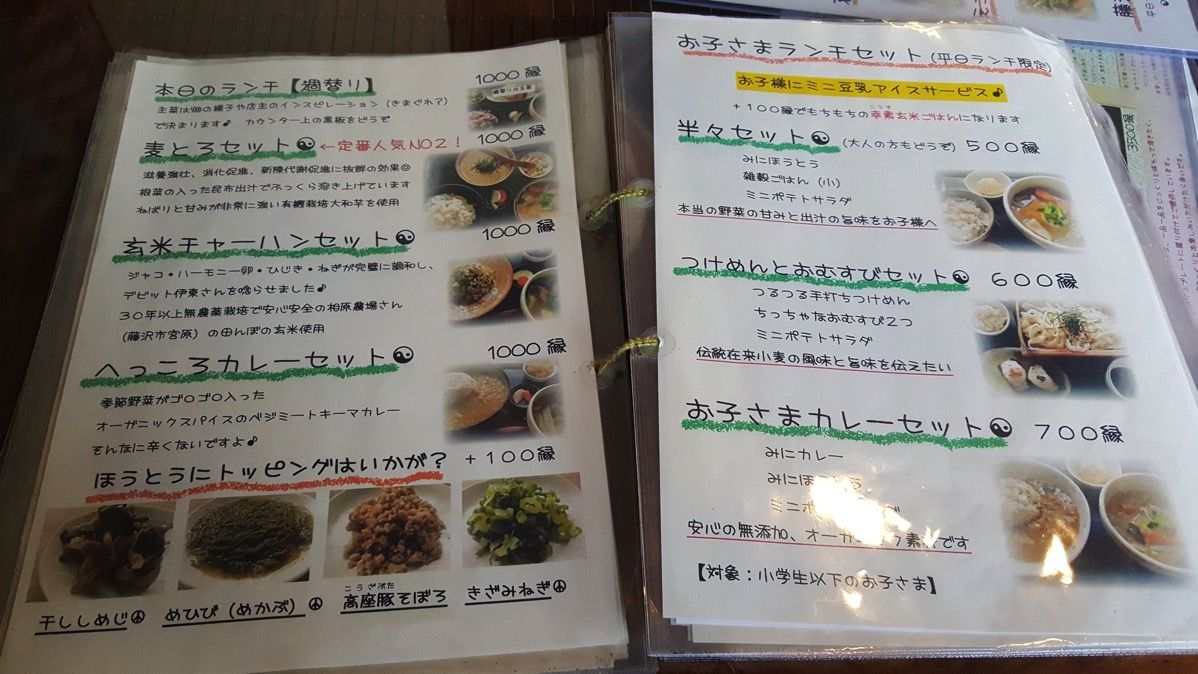 本日のランチ【週替り】 1000縁
主菜は畑の様子や店主のインスピレーション(きまぐれ?)
で決まります♪ カウンター上の黒板をどうぞ
麦とろセット☯←定番人気NO2! 1000縁
滋養強壮、消化促進、新陳代謝促進に抜群の効果◎
根菜の入った昆布出汁でふっくら溶き上げています
ねばりと甘みが非常に強い有機栽培大和芋を使用
玄米チャーハンセット☯ 1000縁
ジャコ・ハーモニー卵・ひじき・ねぎが完璧に調和し、
デビット伊東さんを唸らせました♪
30年以上無農薬栽培で安心安全の相原農場さん
(藤沢市宮原)の田んぼの玄米使用
へっころカレーセット☯ 1000縁
季節野菜がゴロゴロ入った
オーガニックスパイスのベジミートキーマカレー
そんなに辛くないですよ♪
ほうとうにトッピングはいかが? +100縁
干ししめじ☮ めひび(めかぶ)☮ 高座豚そぼろ きざみねぎ☮
こうざぶた
お子さまランチセット(平日ランチ限定)
お子様にミニ豆乳アイスサービス♪
+100縁でもちもちの幸素玄米ごはんになります
こうそ
半々セット☯(大人の方もどうぞ) 500縁
みにほうとう
雑穀ごはん(小)
ミニポテトサラダ
本当の野菜の甘みと出汁の旨味をお子様へ
つけめんとおむすびセット☯ 600縁
つるつる手打ちつけめん
ちっちゃなおむすび2つ
ミニポテトサラダ
伝統在来小麦の風味と旨味を伝えたい
お子さまカレーセット☯ 700縁
みにカレー
みにほうとう
ミニポ
安心の無添加、オーガニック素材です
【対象:小学生以下のお子さま】
3500縁